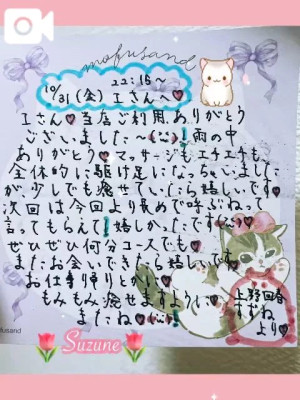 mofusand
22:15〜
10/31(金) Iさんへ♥
Iさん♥当店ご利用ありがとう
ございました〜(^^)!雨の中
ありがとう♥マッサージもエチエチも、
全体的に駆け足になっちゃいました
が、少しでも癒せていたら嬉しいです♥
次回は今回より長めで呼ぶねって
言ってもらえて!嬉しかったです(^^)♥
ぜひぜひ何分コースでも♥
またお会いできたら嬉しいです♥
お仕事帰りとかに♥
もみもみ癒せますように♥
またね♥(^^)!
上野回春
すずね
より♥
mofusand
Suzune